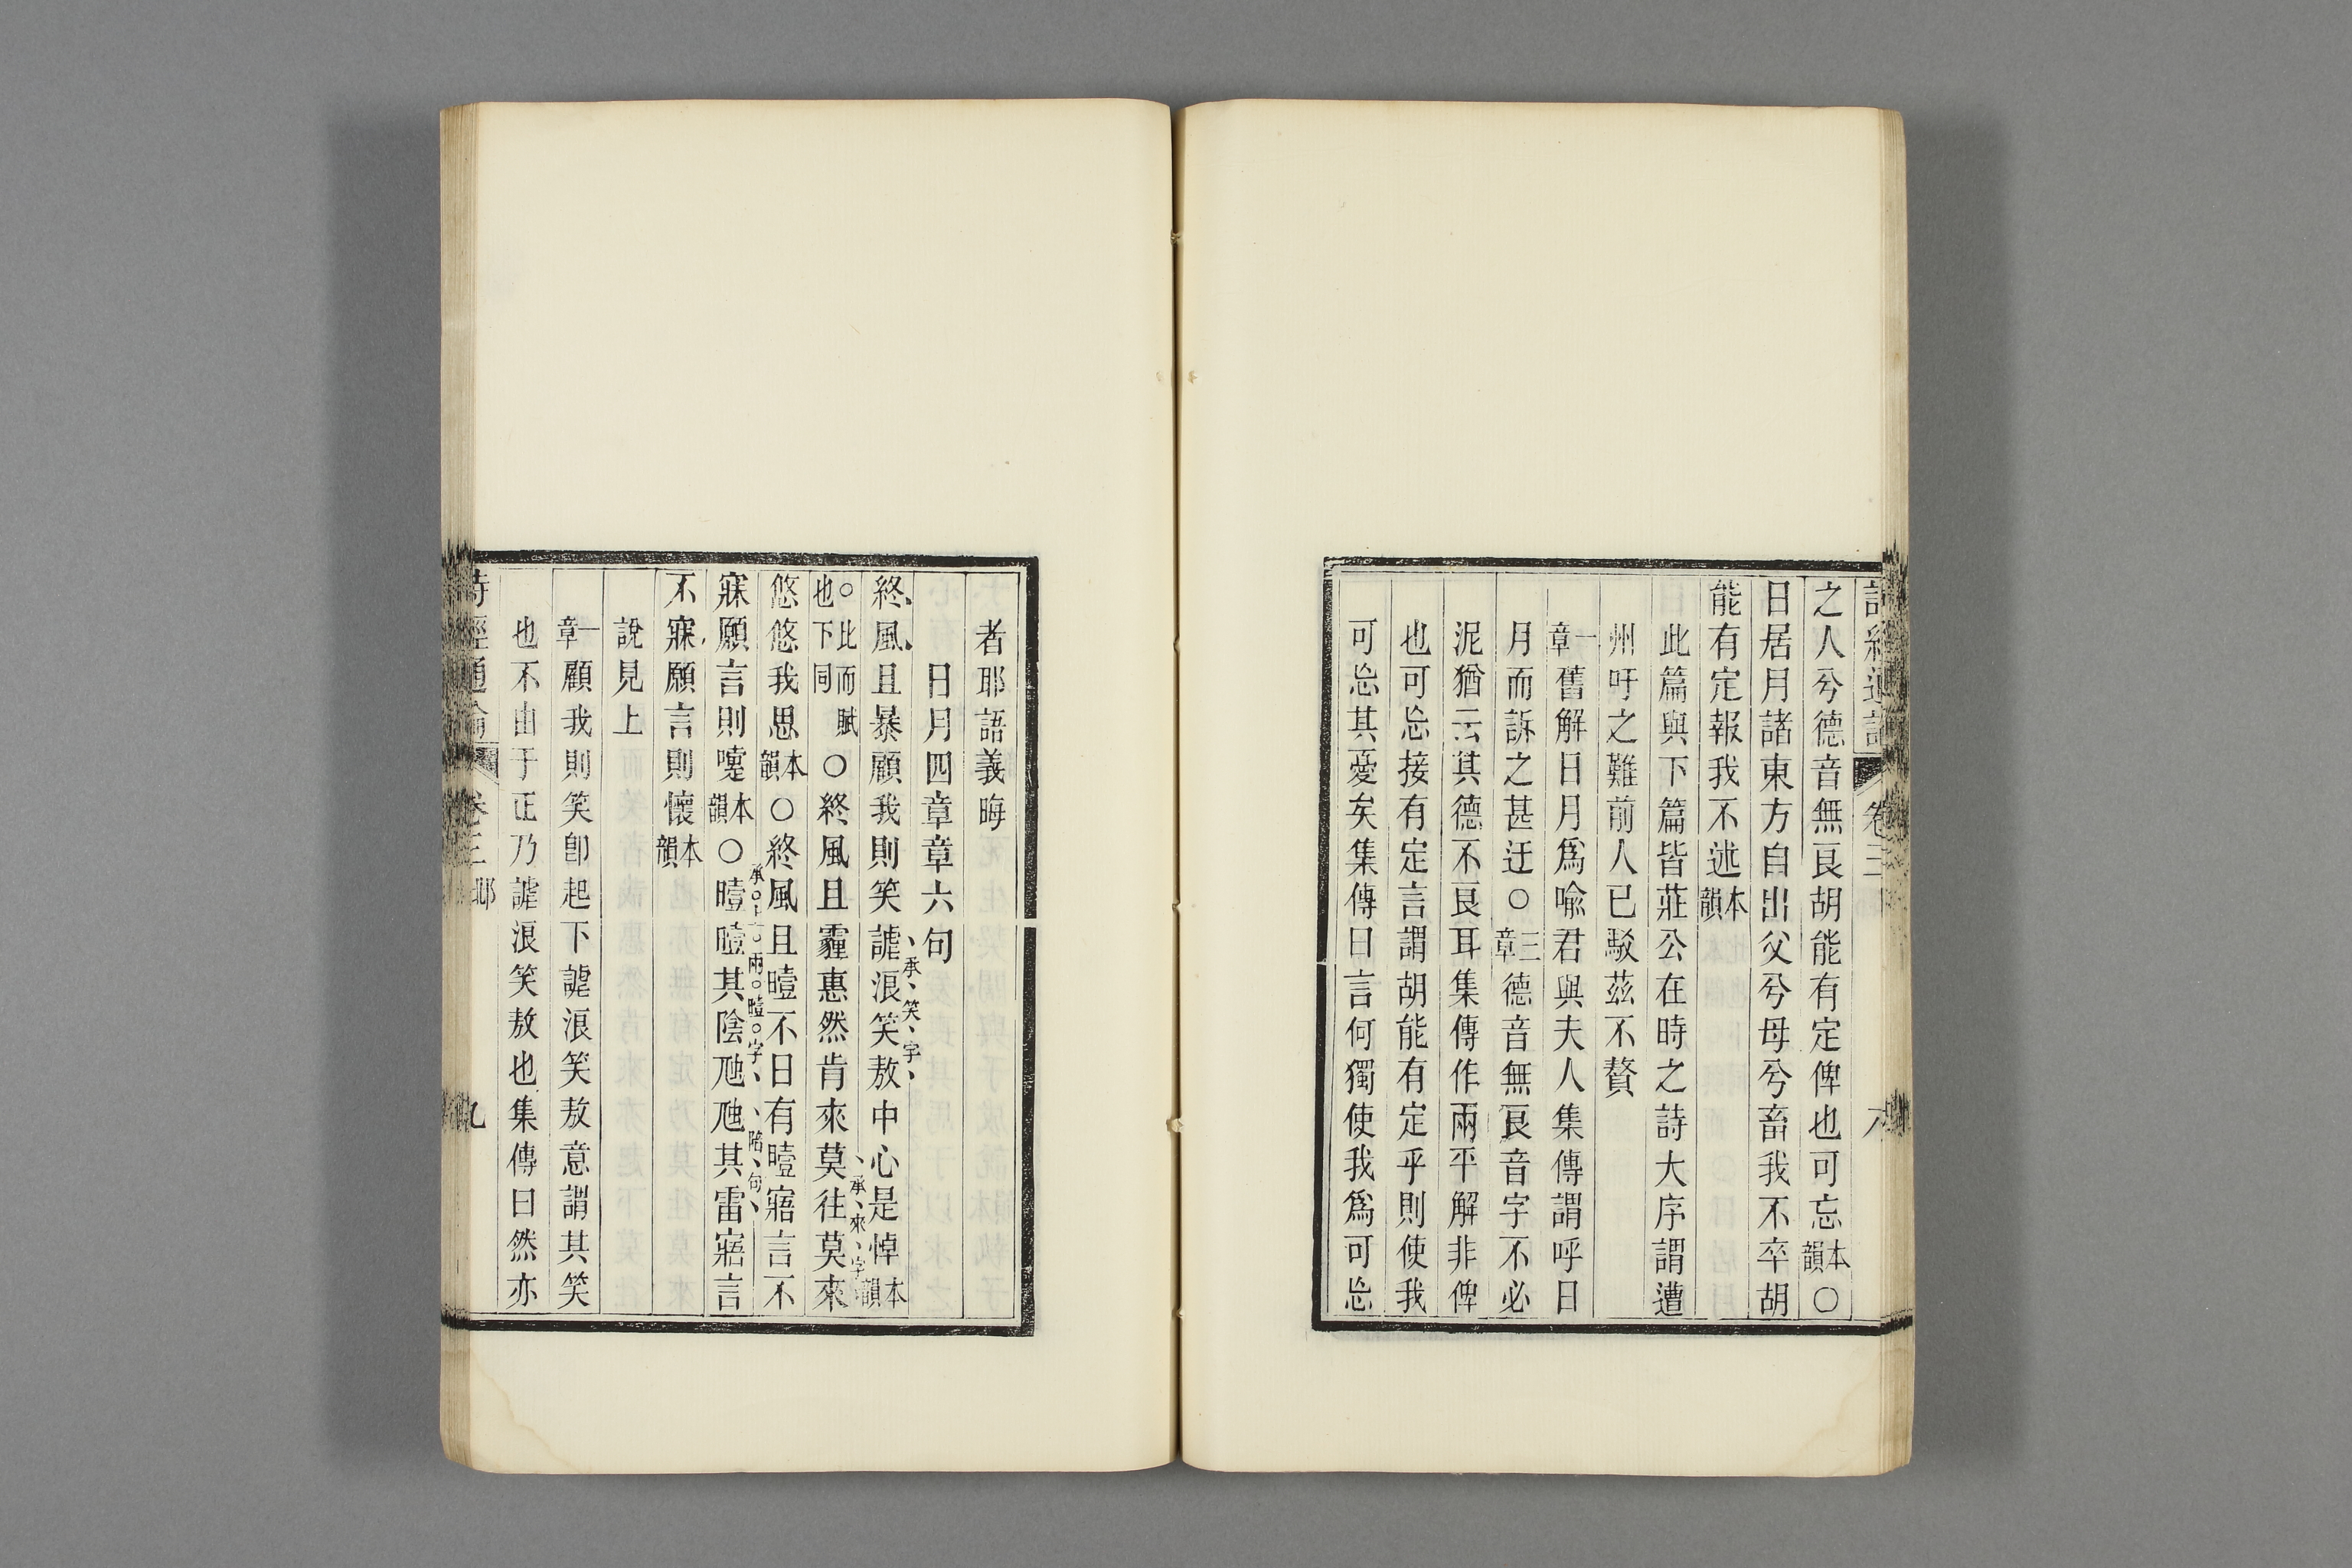 詩經通論 卷三 八
之人兮德音無良胡能有定俾也可忘本韻〇
日居月諸東方自出父兮母兮畜我不卒胡
能有定報我不述本韻
此篇與下篇皆莊公在時之詩大序謂遭
州吁之難前人已駁茲不贅
一章舊解日月爲喩君與夫人集傳謂呼日
月而訴之甚迂〇三章德音無良音字不必
泥猶云其德不良耳集傳作兩平解非俾
也可忘接有定言謂胡能有定乎則使我
可忘其憂矣集傳曰言何獨使我爲可忘
者耶語義晦
日月四章章六句
終風且暴顧我則笑謔浪笑敖中心是悼本韻
承笑字
〇比而賦也下同〇終風且霾惠然肯來莫往莫來
承來字
悠悠我思本韻〇終風且曀不日有曀寤言不
寐願言則嚏本韻〇曀曀其陰虺虺其雷寤言
承上兩曀字 陪句
不寐願言則懷本韻
說見上
一章顧我則笑卽起下謔浪笑敖意謂其笑
也不由于正乃謔浪笑敖也集傳曰然亦
詩經通論 卷三 邶 九